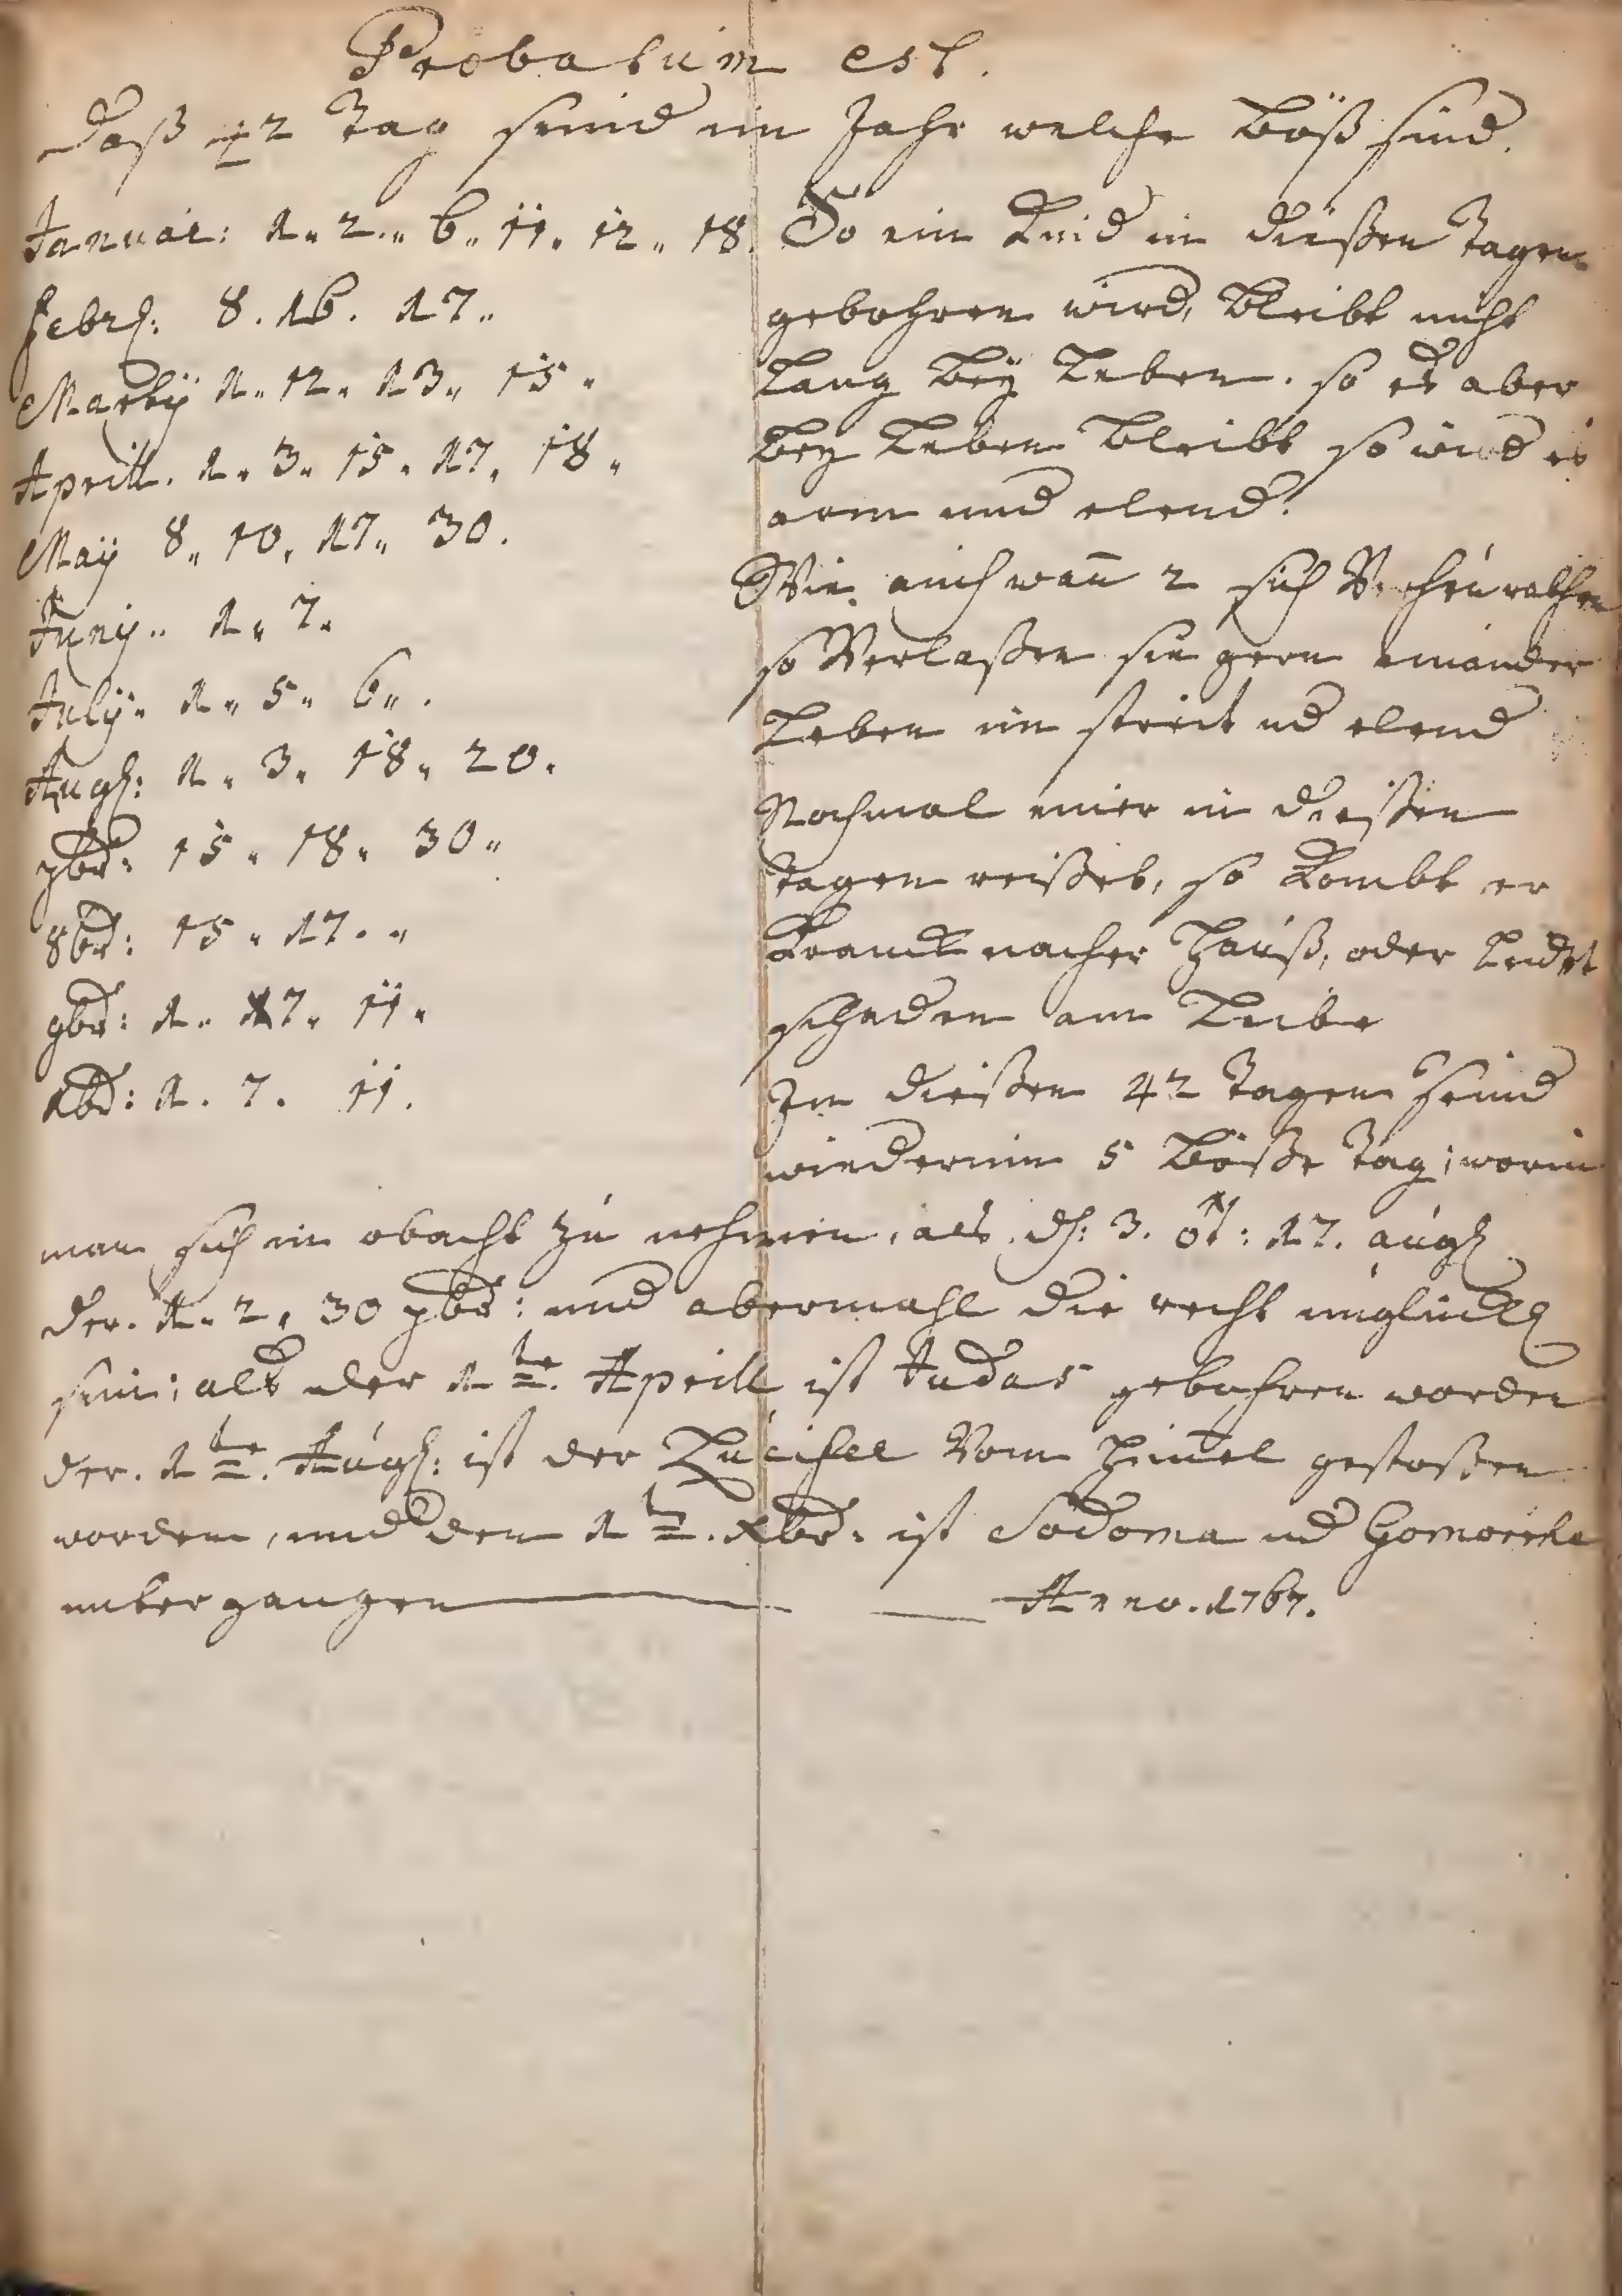 Probatum est.
Daß 42 Tag seind im Jahr welche böß sind.
Januar: 1. 2. 6. 11. 12. 18.
Febr: 8. 16. 17.
Martÿ 1. 12. 13. 15.
Aprill. 1. 3. 15. 17. 18.
Maÿ 8. 10. 17. 30.
Junÿ. 1. 7.
Julÿ. 1. 5. 6.
Aug: 1. 3. 18. 20.
7br: 15. 18. 30.
8br: 15. 17.
9br: 1. 7. 11.
Xbr: 1. 7. 11.
So ein Kind in dießen Tagen
gebohren wird, bleibt nicht
lang beÿ Leben. so es aber
beÿ Leben bleibt so wird es
arm und elend.
Wie auch wan̄ 2 sich Verheurathen
so Verlaßen sie gern einander
Leben im streit ud elend
Nochmal einer in dießen
Tagen reißet, so kombt er
kranck nacher Hauß, oder Leidet
schaden am Leibe
In dießen 42 Tagen seind
wiederum 5 böße Tag; worin
man sich in obacht zu nehmen, als d: 3. 17. aug
der. 1. 2. 30 7br: und abermahl die recht unglückl
sein; als der 1te. Aprill ist Judas gebohren worden
der. 1te. Aug: ist der Lucifer Vom Himel gestoßen
worden, und den 1t. Xbr: ist Sodoma ud Gomorrha
untergangen Anno. 1767.